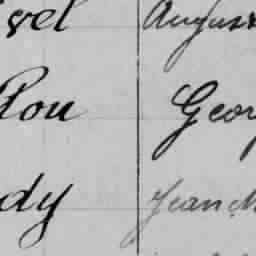 vel August
Rou Geor
dy Jean M